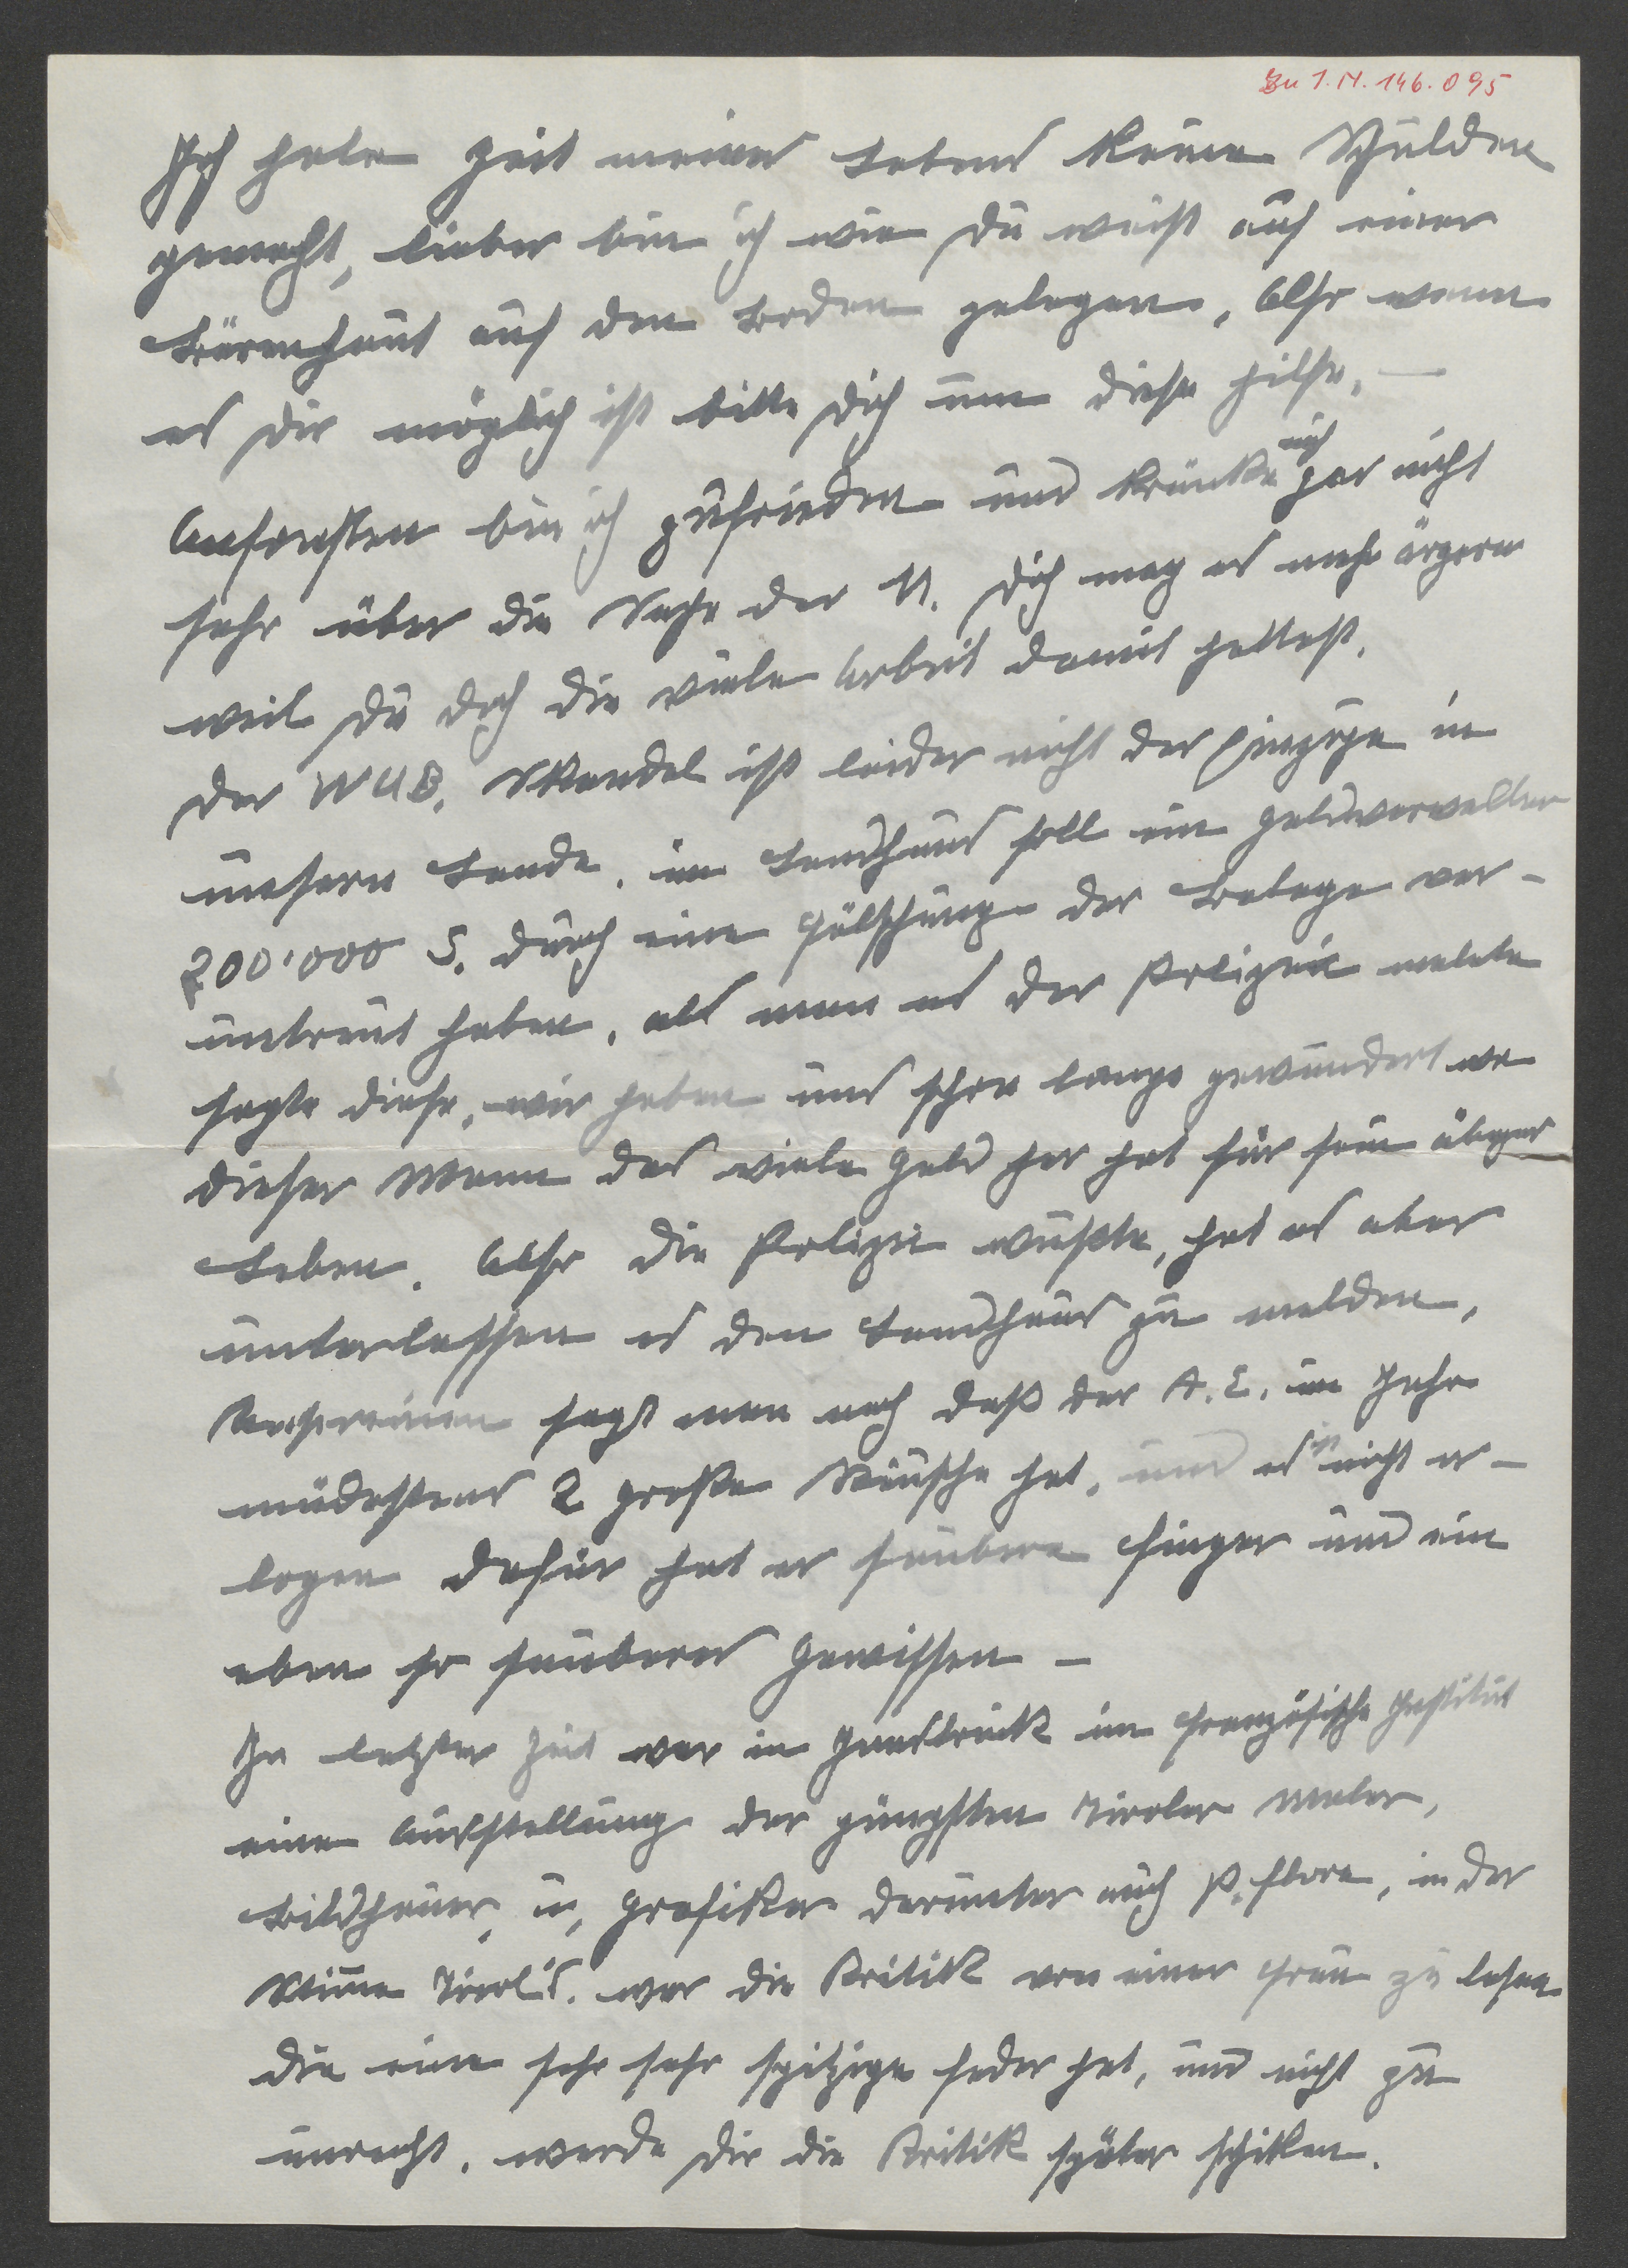 Zu I.N. 146.095
Ich habe Zeit meines Lebens keine Schulden
gemacht, lieber bin ich wie Du weist auf einer
Bärenhaut auf den Boden gelegen, Also wenn
es Dir möglich ist bitte Dich um diese Hilfe. —
Ansonsten bin ich zufrieden und kränke mich gar nicht
sehr über die Sache der N. Dich mag es mehr ärgern
weil Du doch die viele Arbeit damit hattest.
Der WUB. Skandal ist leider nicht der einzige in
unsern Lande, im Landhaus soll ein Geldverwalter
200'000 S. durch eine Fälschung der Belege ver-
untreut haben, als man es der Polizei melete
sagte diese, wir haben uns schon lange gewundert wo
dieser Mann das viele Geld her hat für sein übiges
Leben. Also die Polizei wußte, hat es aber
unterlassen es den Landhaus zu melden,
sagt man noch daß der A.E. im Jahr
mindestens 2 große Räusche hat, und es nicht er-
logen dafür hat er saubere Finger und ein
eben so sauberes Gewissen —
In letzter Zeit war in Innsbruck im Französische Institut
eine Ausstellung der jüngsten Tiroler Maler,
Bildhauer, u, Grafiker darunter auch P. Flora, in der
Stimme Tirol's. war die Kritik von einer Frau zu lesen
die eine sehr sehr spitzige Feder hat, und nicht zu
unrecht, werde Dir die Kritik später schiken.